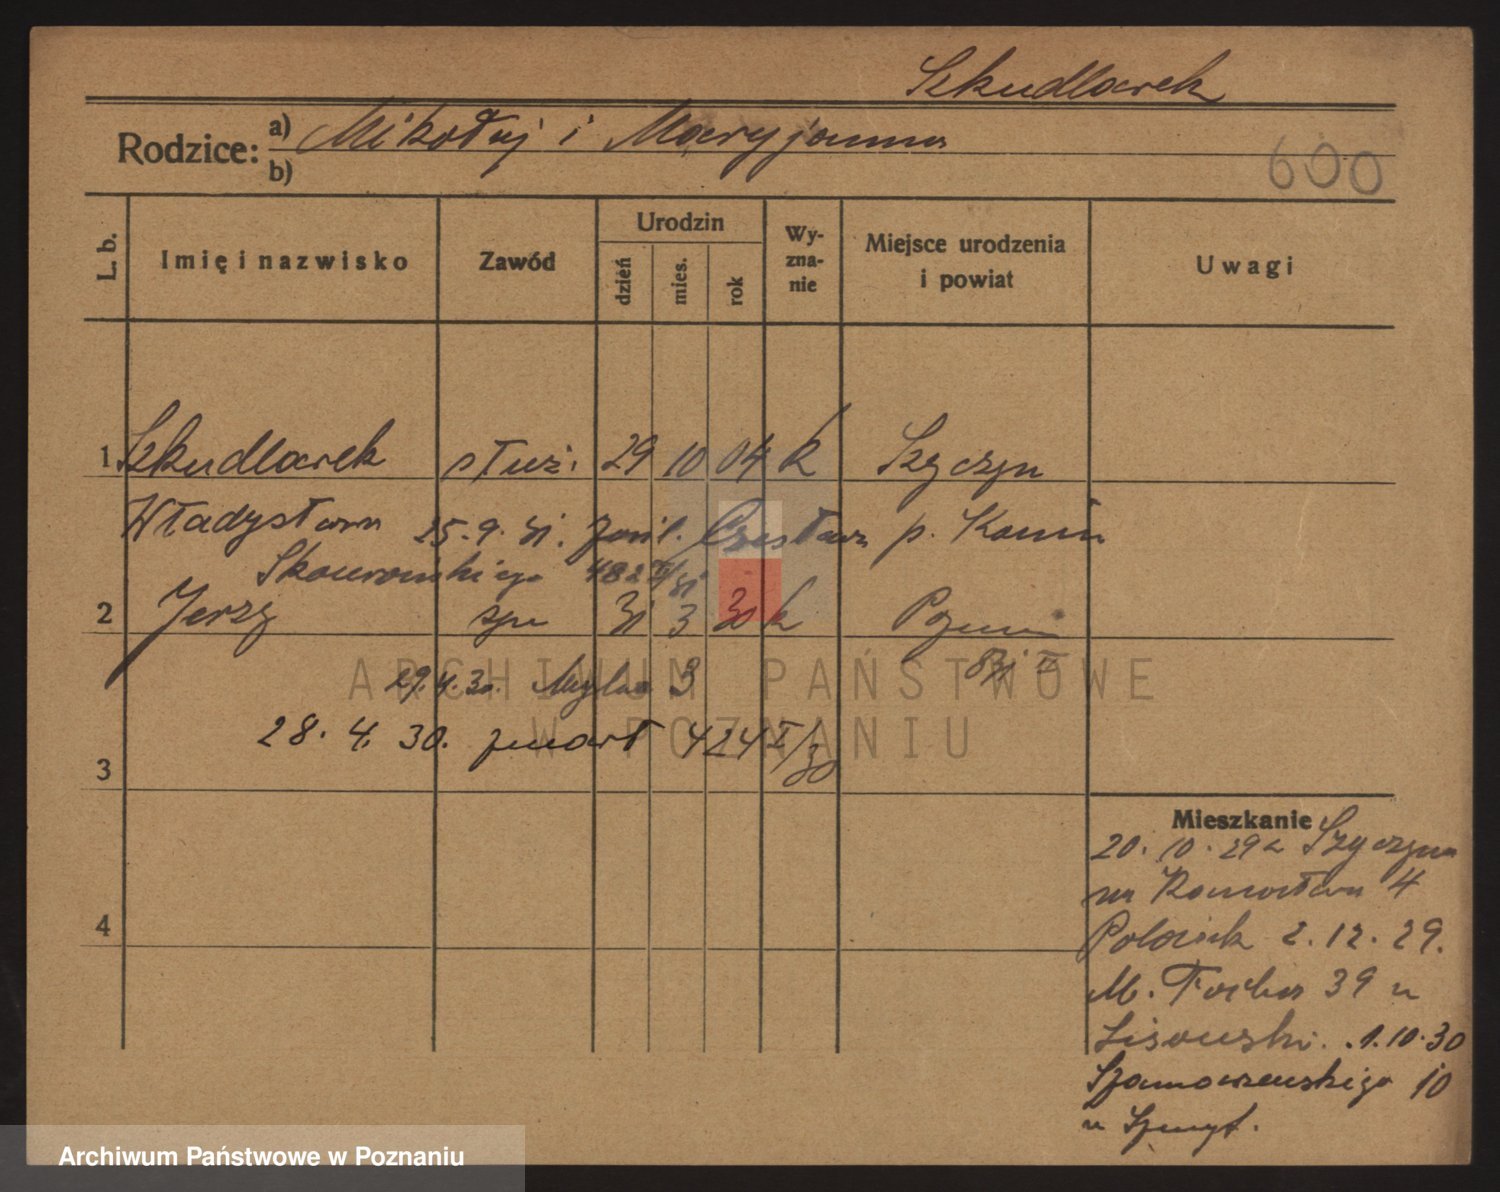 Szkudlarek
Rodzice: a) Mikołaj i Maryjanna
b)
600
L. b.
Imię i nazwisko
Zawód
Urodzin
dzień
mies.
rok
Wy-
zna-
nie
Miejsce urodzenia
i powiat
Uwagi
1 Szkudlarek służ. 29 10 04 k Szyczyn
Władysława 25.9.31. p. Konin
Skowrońskiego
2 Jerzy 31 3 30 k Poznań
29.4.30. Mylna 3
28.4.30. zmarł 424 II/30
3
4
Mieszkanie
20.10.29 z Szyczyna
na 4
2.12.29.
M. Focha 39 u
Lisowski. 1.10.30
Szamarzewskiego 10
u Szmyt.
ARCHIWUM PAŃSTWOWE
W POZNANIU
Archiwum Państwowe w Poznaniu